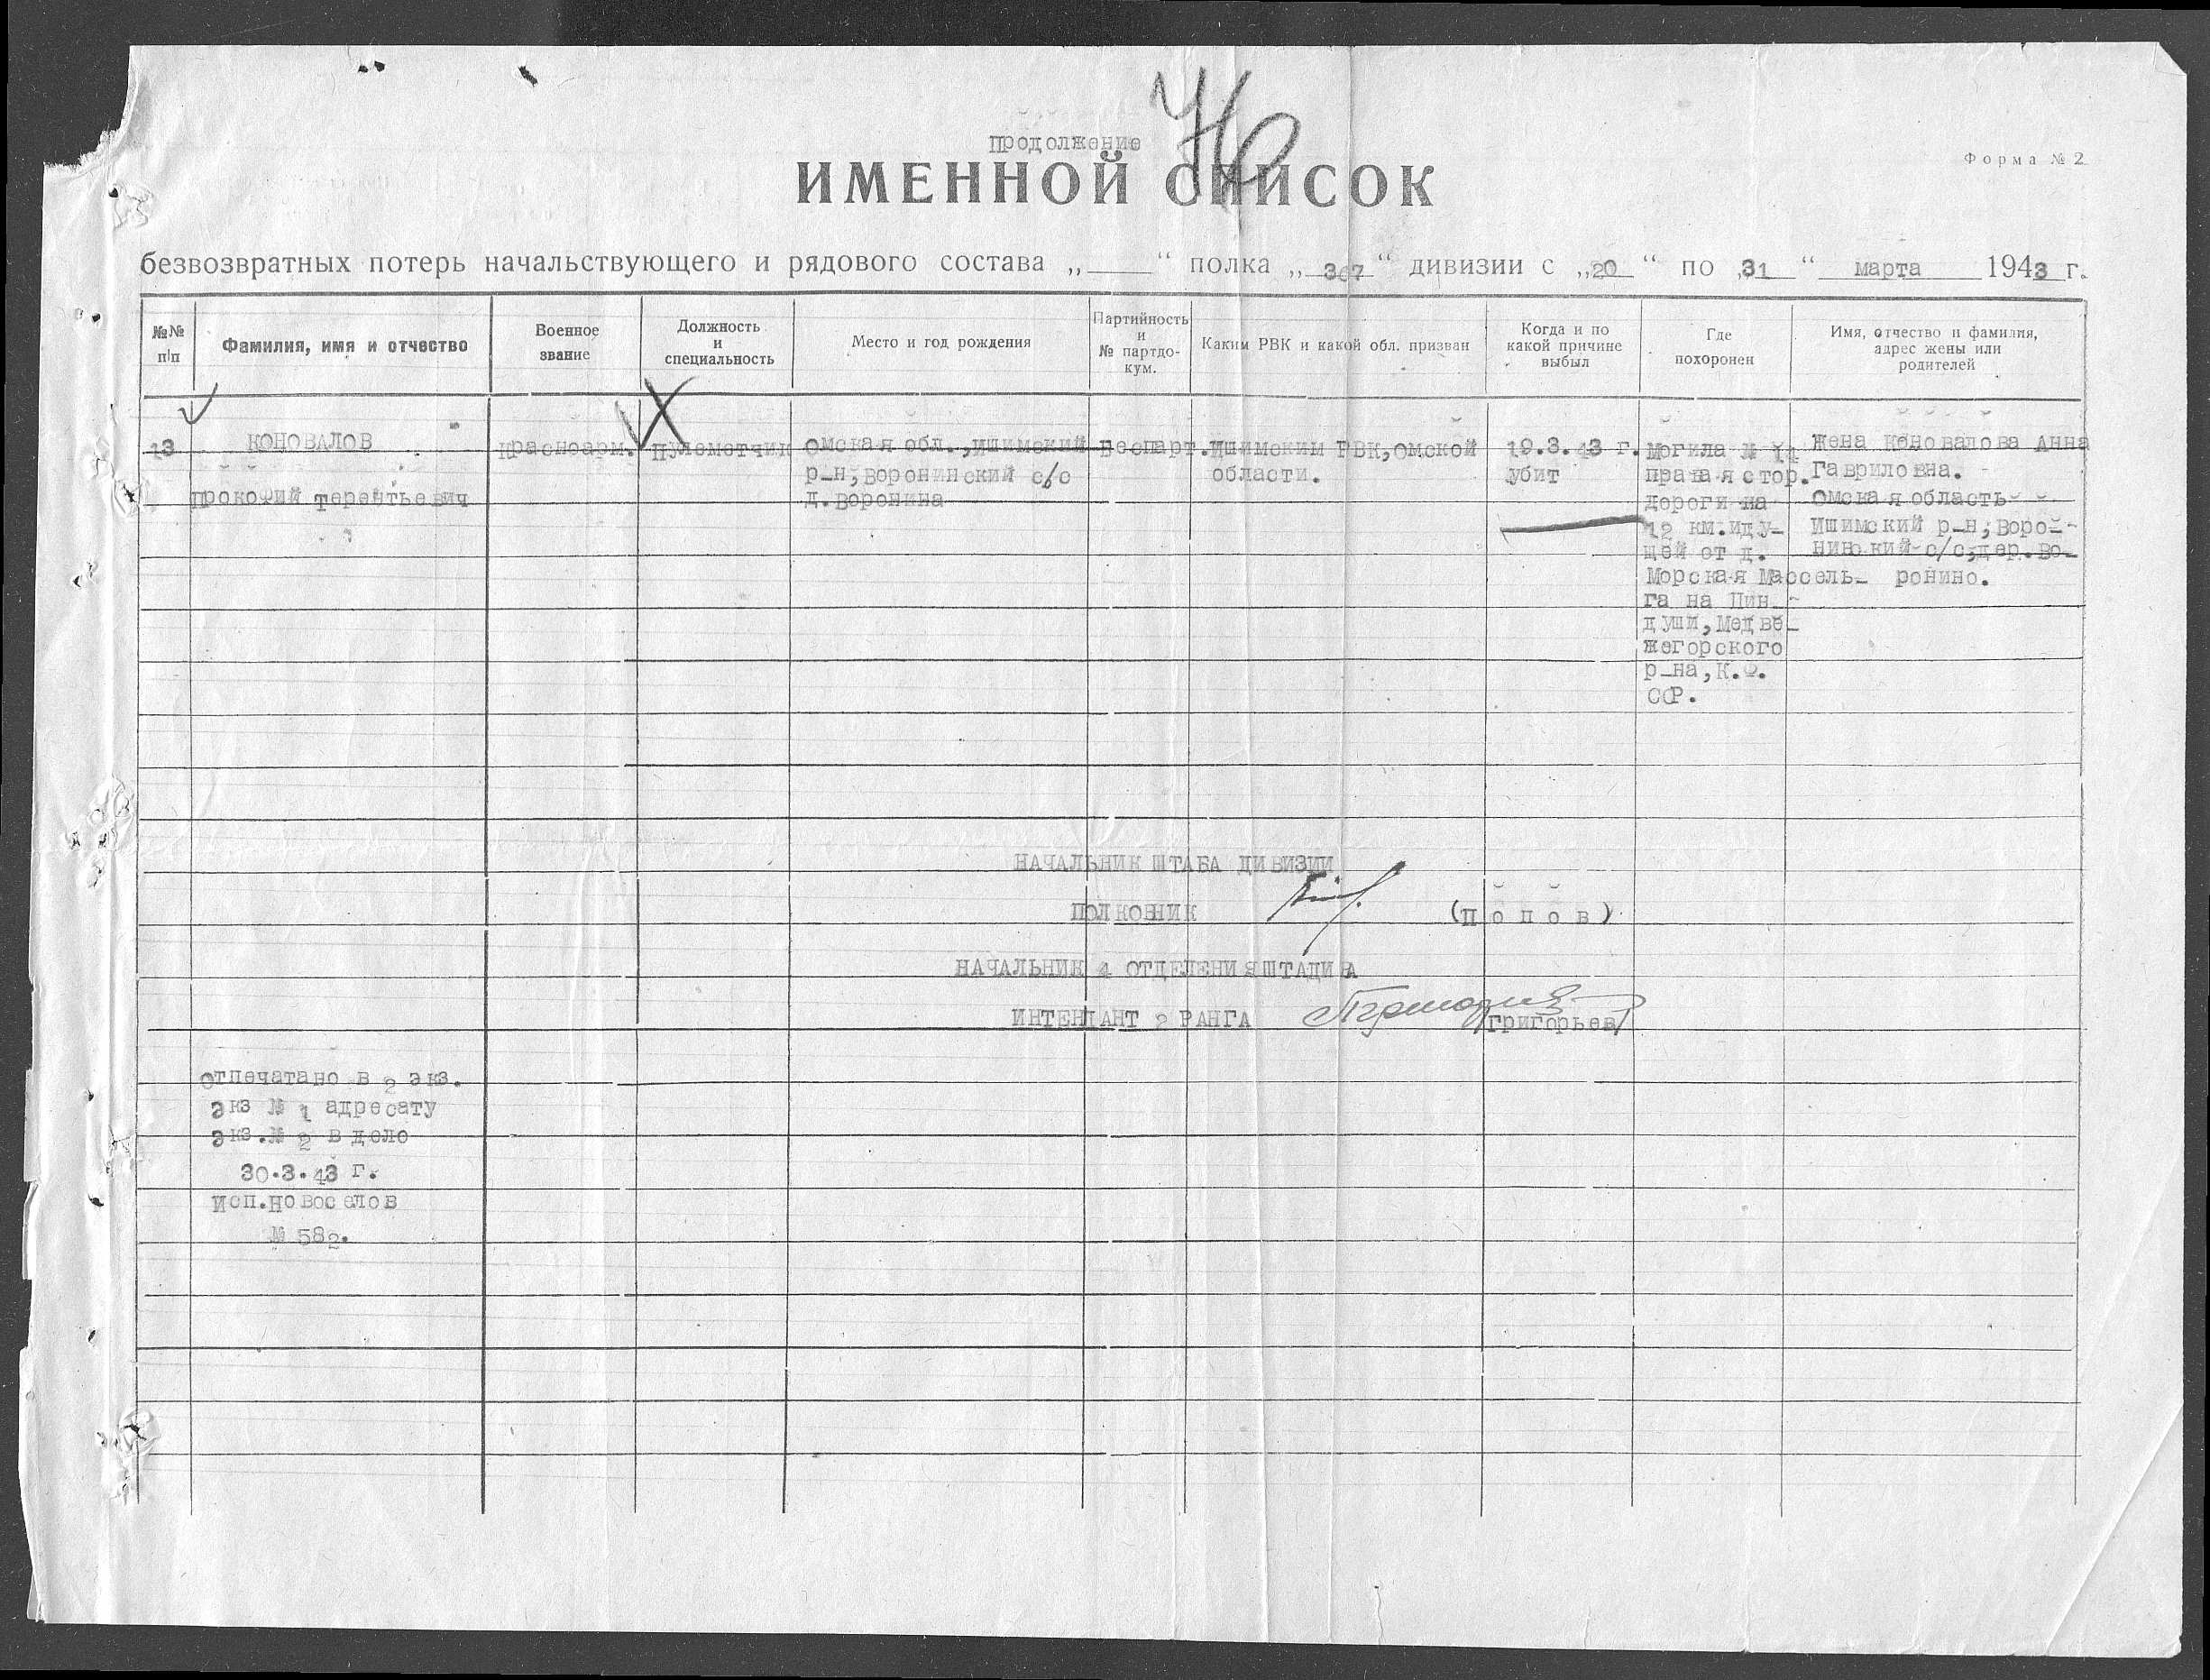 76
Продолжение
Форма № 2
ИМЕННОЙ СПИСОК
безвозвратных потерь начальствующего и рядового состава „ “ полка „ 367 “ дивизии с „20 “ по „31 “ марта 1943 г.
№№
п/п
Фамилия, имя и отчество
Военное
звание
Должность
и
специальность
Место и год рождения
Партийность
и
№ партдо-
кум.
Каким РВК и какой обл. призван
Когда и по
какой причине
выбыл
Где
похоронен
Имя, отчество и фамилия,
адрес жены или
родителей
13
КОНОВАЛОВ
Прокофий Терентьевич
Красноарм.
Пулеметчик
Омская обл.,Ишимский
р-н,Воронинский с/с
д.Воронина
Беспарт.
Ишимским РВК,Омской
области.
19.3.43 г.
убит
Могила № 11
правая стор.
дороги на
12 км.иду-
щей от д.
Морская Массель-
га на Пин-
души,Медве-
жегорского
р-на,К.Ф.
ССР.
Жена Коновалова Анна
Гавриловна.
Омская область
Ишимский р-н,Воро-
нинский с/с,дер.Во-
ронино.
НАЧАЛЬНИК ШТАБА ДИВИЗИИ
ПОЛКОВНИК (П о п о в)
НАЧАЛЬНИК 4 ОТДЕЛЕНИЯ ШТАДИВА
ИНТЕНДАНТ 2 РАНГА /Григорьев/
Отпечатано в 2 экз.
экз № 1 адресату
экз.№ 2 в дело
30.3.43 г.
Исп.Новоселов
№ 582.